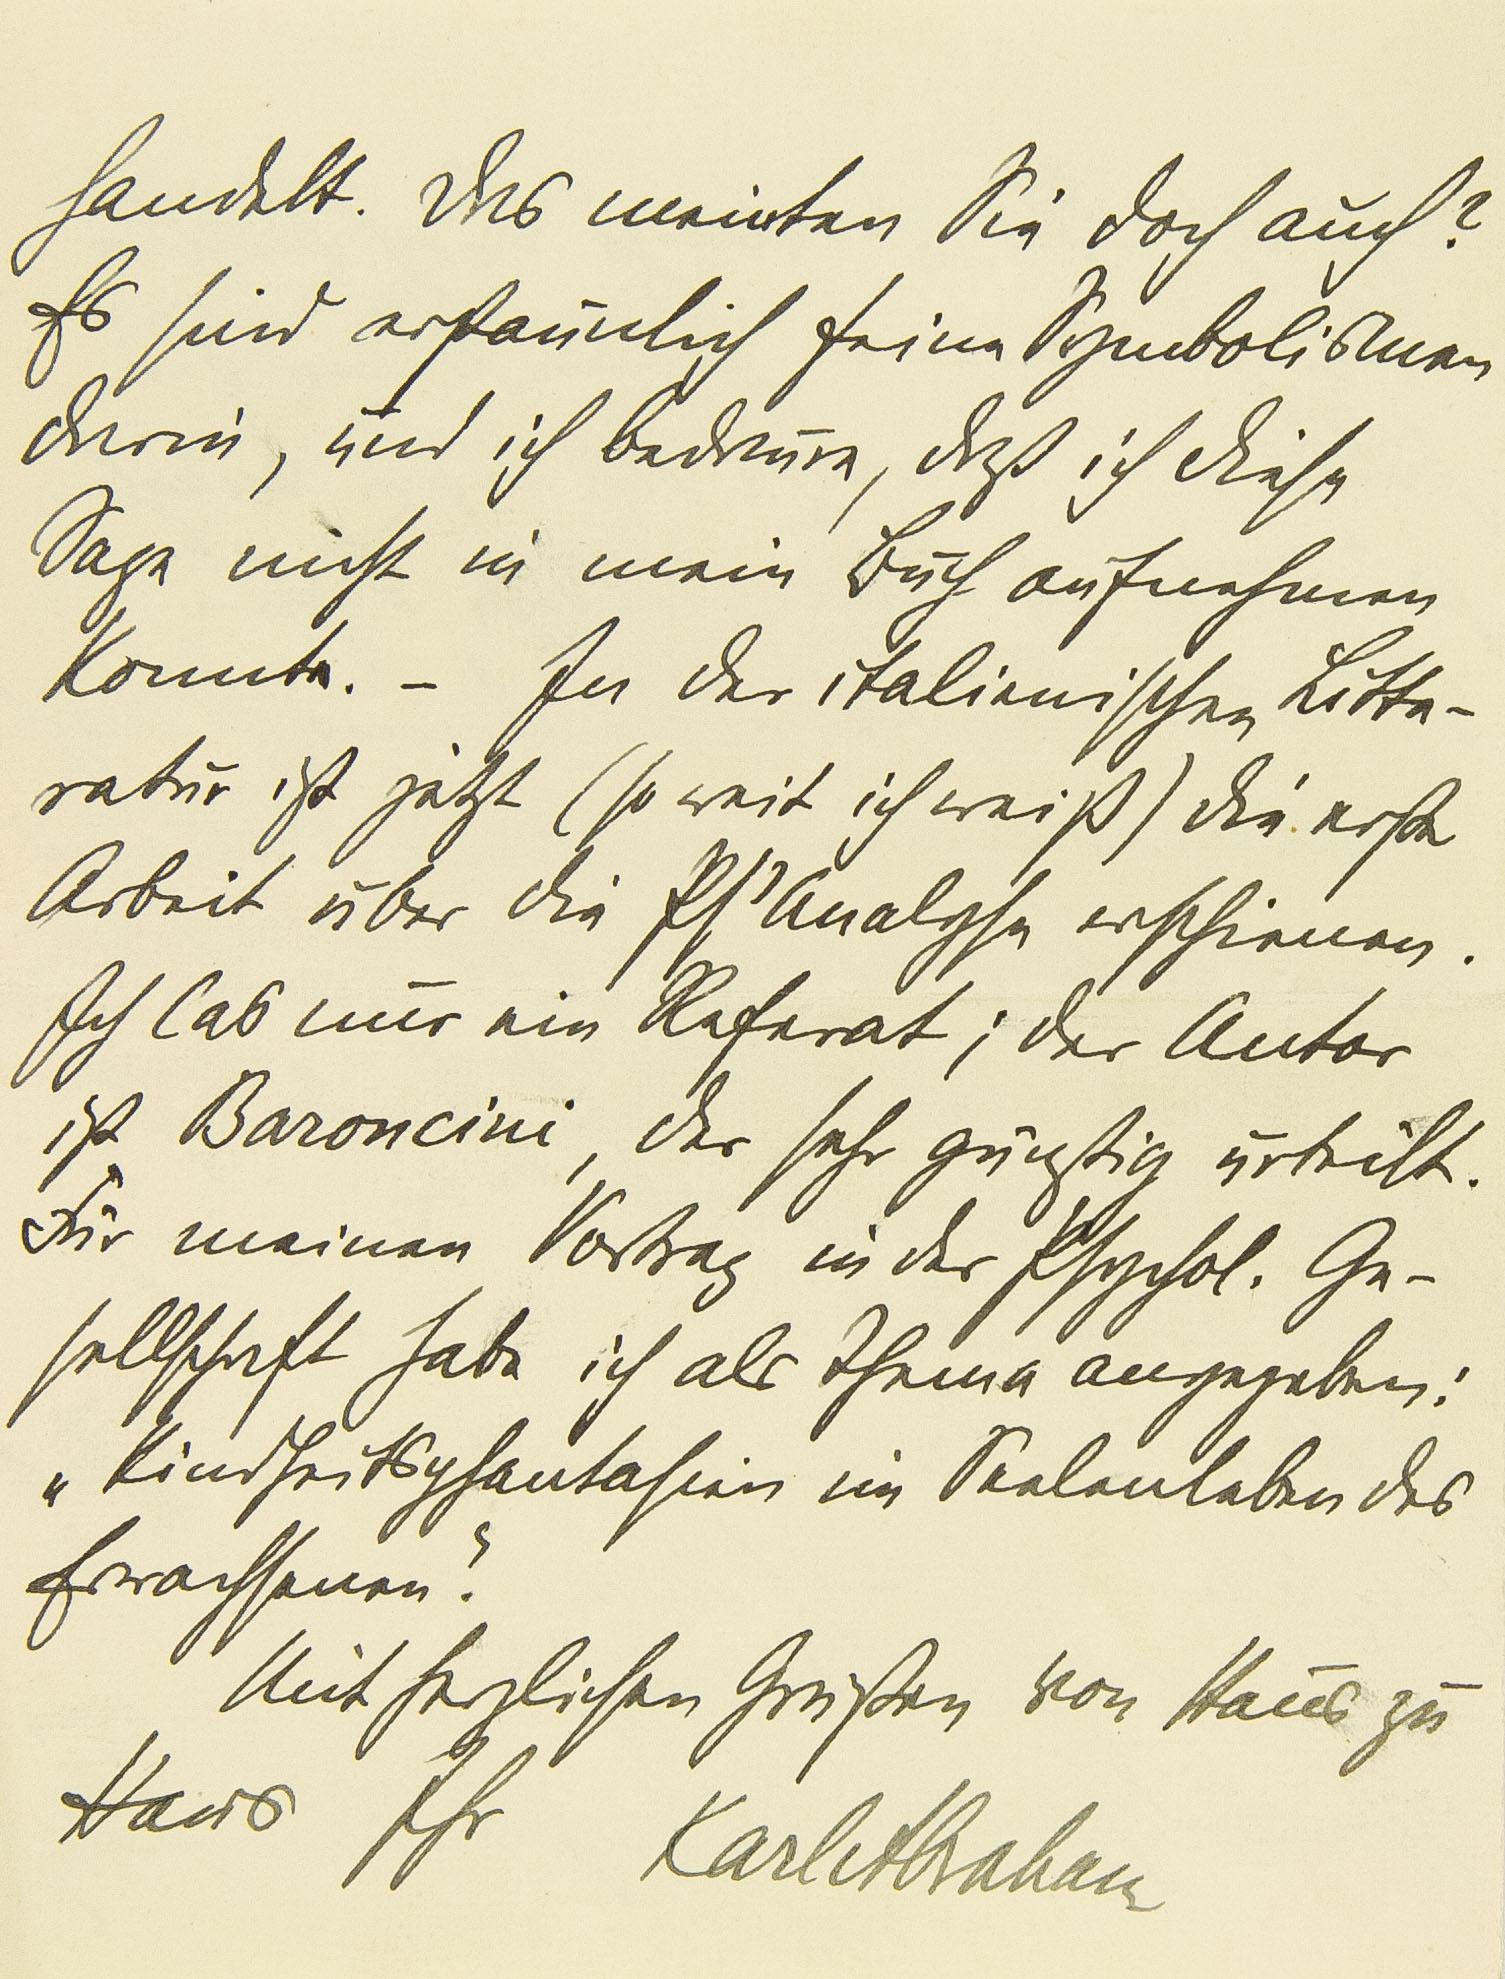 handelt. Das meinten Sie doch auch?
Es sind erstaunlich feine Symbolismen
darin, und ich bedaure, daß ich diese
Sage nicht in mein Buch aufnehmen
konnte. – In der italienischen Litte-
ratur ist jetzt (so weit ich weiß) die erste
Arbeit über die Ps'Analyse erschienen.
Ich las nur ein Referat; der Autor
ist Baroncini, der sehr günstig urteilt.
Für meinen Vortrag in der Psychol. Ge-
sellschaft habe ich als Thema angegeben:
„Kindheitsphantasien im Seelenleben des
Erwachsenen“.
Mit herzlichen Grüßen von Haus zu
Haus Ihr Karl Abraham